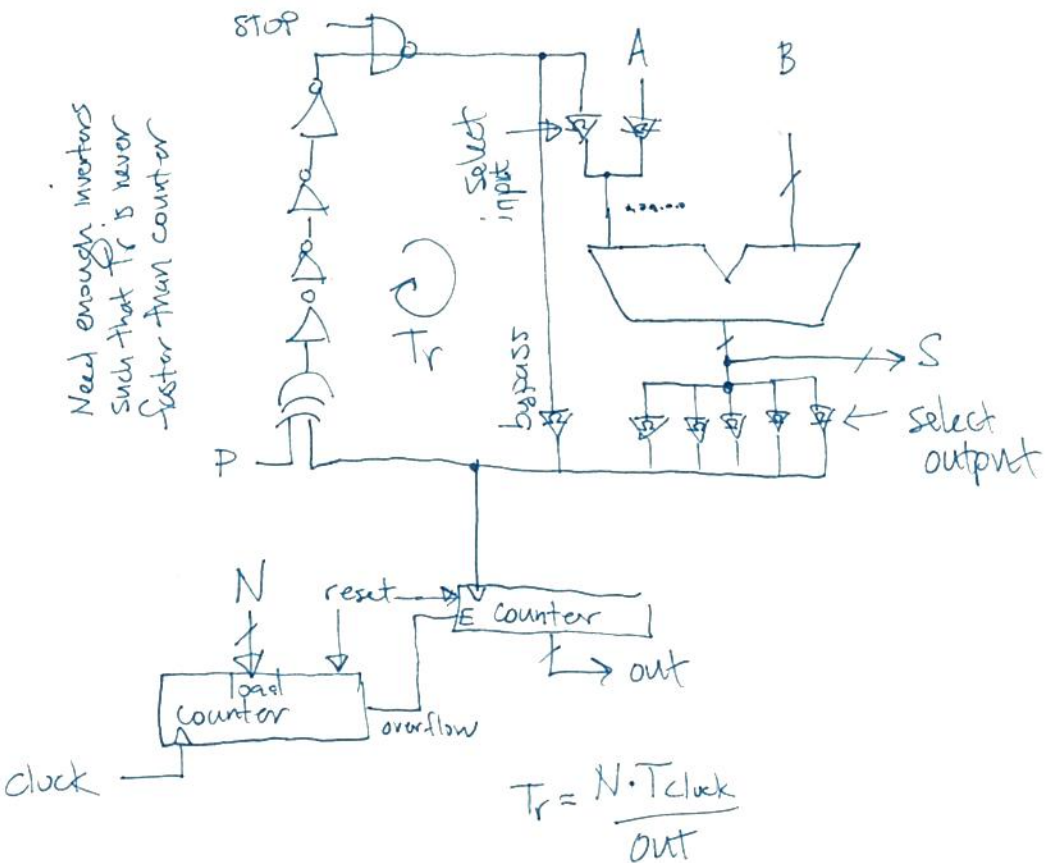 STOP
A
B
Need enough inverters
such that Tr is never
faster than counter
select
input
Tr
bypass
S
select
output
P
N
reset
E counter
out
load
counter
overflow
clock
Tr = N·Tclock
out